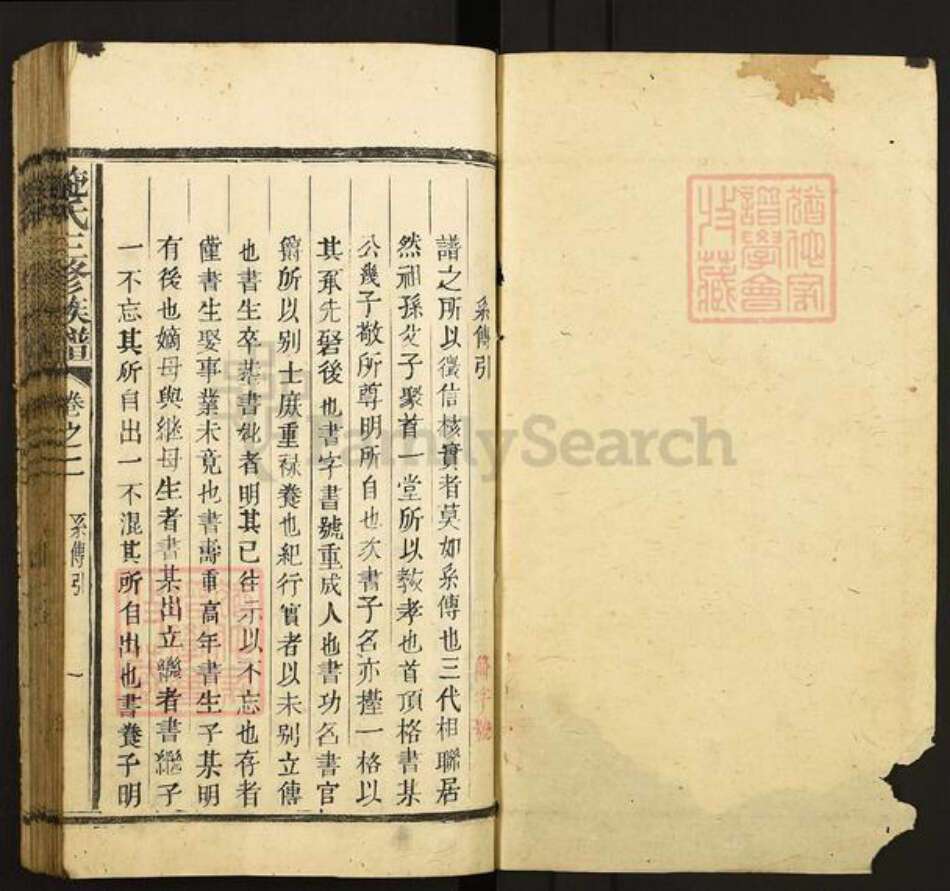 系傳引
譜之所以徵信核實者莫如系傳也三代相聯居
然祖孫父子聚首一堂所以教孝也首頂格書某
公幾子敬所尊明所自也次書子名亦擡一格以
其承先啓後也書字書號重成人也書功名書官
爵所以别士庶重祿養也紀行實者以未别立傳
也書生卒葬書妣者明其已往示以不忘也存者
僅書生娶事業未竟也書壽重高年書生子某明
有後也嫡母與継母生者書某出立繼者書繼子
一不忘其所自出一不混其所自出也書養子明
氏三修族譜
卷之二
系傳引
一
譜學會
收藏
FamilySearch